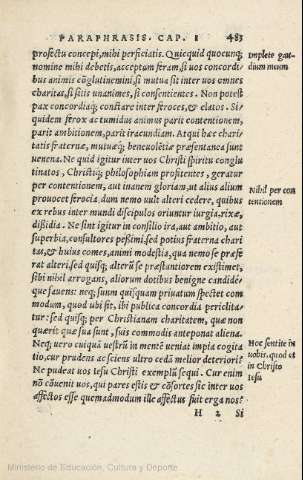 PARAPHRASIS. CAP. I 483
profectu concepi, mihi perficiatis. Quicquid quocunq;
nomine mihi debetis, acceptum feram, si uos concordi-
bus animis cōglutinemini, si mutua sit inter uos omnes
charitas, si sitis unanimes, si consentientes. Non potest
pax concordiaq; constare inter feroces, & elatos. Si-
quidem ferox ac tumidus animus parit contentionem,
parit ambitionem, parit iracundiam. At qui hæc chari-
tatis fraternæ, mutuæq; beneuolētiæ præsentanea sunt
uenena. Ne quid igitur inter uos Christi spiritu conglu
tinatos, Christiq; philosophiam profitentes, geratur
per contentionem, aut inanem gloriam, ut alius alium
prouocet ferocia, dum nemo uult alteri cedere, quibus
ex rebus inter mundi discipulos oriuntur iurgia, rixæ,
dißidia. Ne sint igitur in consilio ira, aut ambitio, aut
superbia, consultores peßimi, sed potius fraterna chari
tas, & huius comes, animi modestia, qua nemo se præfe
rat alteri, sed quisq; alterū se præstantiorem existimet,
sibi nihil arrogans, aliorum dotibus benigne candidé-
que fauens: neq; suum quisquam priuatum spectet com
modum, quod ubi fit, ibi publica concordia periclita-
tur: sed quisq; per Christianam charitatem, quæ non
quærit quæ sua sunt, suis commodis anteponat aliena.
Neq; uero cuiquā uestrū in mentē ueniat impia cogita
tio, cur prudens ac sciens ultro cedā melior deteriori?
Ne pudeat uos Iesu Christi exemplū sequi. Cur enim
nō cōuenit uos, qui pares estis & cōsortes sic inter uos
affectos esse quemadmodum ille affectus fuit erga nos?
H 2 Si
Implete gau-
dium meum
Nihil per con
tentionem
Hoc sentite in
uobis, quod et
in Christo
Iesu
Ministerio de Educación, Cultura y Deporte